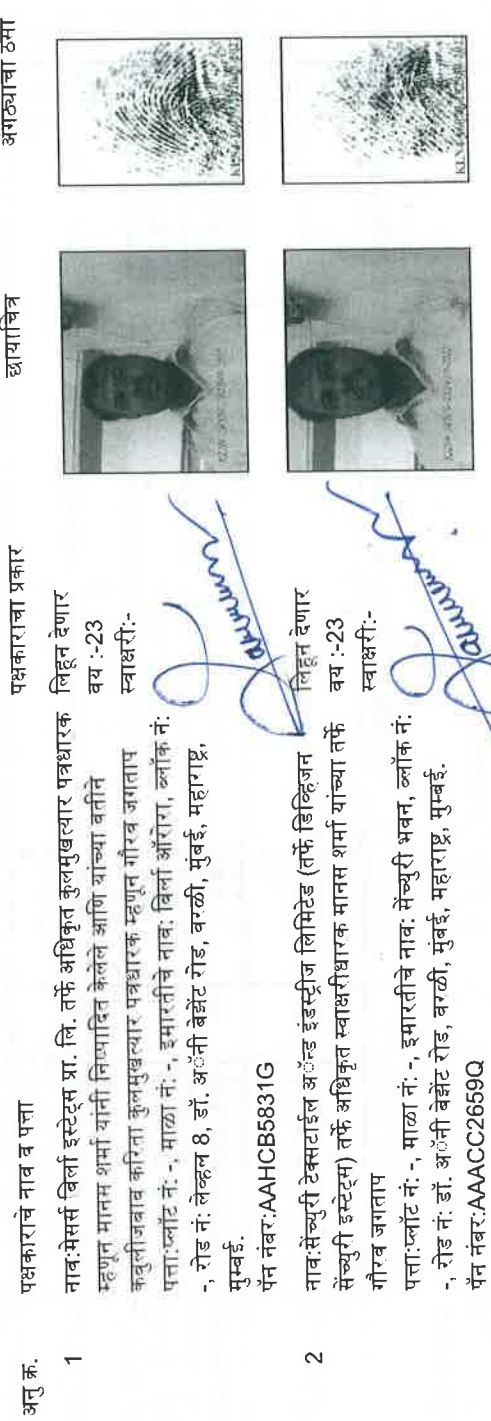 अनु क्र. पक्षकाराचे नाव व पत्ता पक्षकाराचा प्रकार छायाचित्र अंगठ्याचा ठसा
1 नाव:मेसर्स बिर्ला इस्टेट्स प्रा. लि. तर्फे अधिकृत कुलमुखत्यार पत्रधारक लिहून देणार
म्हणून मानस शर्मा यांनी निष्पादित केलेले आणि यांच्या वतीने वय :-23
कबुलीजबाब करिता कुलमुखत्यार पत्रधारक म्हणून गौरव जगताप स्वाक्षरी:-
पत्ता:प्लॉट नं: -, माळा नं: -, इमारतीचे नाव: बिर्ला ऑरोरा, ब्लॉक नं:
-, रोड नं: लेव्हल 8, डॉ. अॅनी बेझेंट रोड, वरळी, मुंबई, महाराष्ट्र,
मुम्बई.
पॅन नंबर:AAHCB5831G
2 नाव:सेंच्युरी टेक्सटाईल अॅन्ड इंडस्ट्रीज लिमिटेड (तर्फे डिव्हिजन लिहून देणार
सेंच्युरी इस्टेट्स) तर्फे अधिकृत स्वाक्षरीधारक मानस शर्मा यांच्या तर्फे वय :-23
गौरव जगताप स्वाक्षरी:-
पत्ता:प्लॉट नं: -, माळा नं: -, इमारतीचे नाव: सेंच्युरी भवन, ब्लॉक नं:
-, रोड नं: डॉ. अॅनी बेझेंट रोड, वरळी, मुंबई, महाराष्ट्र, मुम्बई.
पॅन नंबर:AAACC2659Q